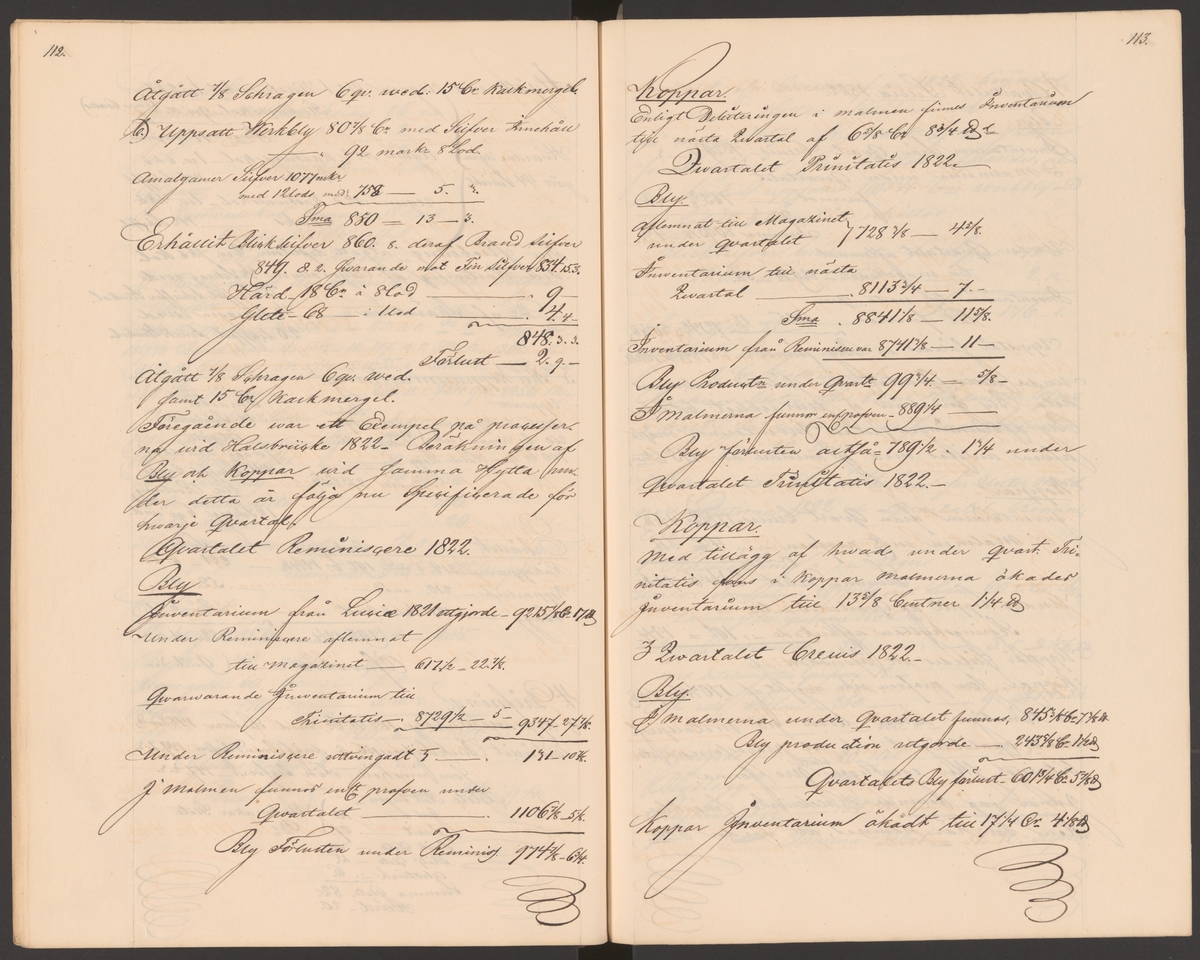 112.
Åtgått 7/8 Schragen Cqv. wed. 15 Cr Kackmergel.
b.) Uppsatt Werkbly 80 7/8 Cr med Silfver Innehåll
92 markr 8 Lod.
Amalgamer Silfver 1077 mkr
med 12 lods med. 758 — 5. 3.
Sma 850 — 13 — 3.
Erhållit Blicksilfver 860. 8. deraf Brand silfver
849. 8. 2. swarande mot Fin Silfver 834. 15. 3.
Härd 18 Cr à 8 lod — 9 —
Glete 68 — 1 lod — 4. 4 —
848. 3. 3.
Förlust — 2. 9 —
Åtgått 7/8 Schragen Cqv. wed.
samt 15 Cr Kackmergel.
Föregående war ett Exempel på processer-
na wid Halsbrücke 1822 — Beräkningen af
Bly och Koppar wid samma Hytta un-
der detta år följa nu specificerade för
hwarje Qvartal.
Qvartalet Reminiscere 1822.
Bly
Inventarium från Luciæ 1821 utgjorde — 9215 7/8 Cr 17 ℔
Under Reminiscere aflemnat
till magazinet — 617 1/2 — 22 7/8.
Qvarwarande Inventarium till
Trinitatis — 8729 1/2 — 5 — 9347 — 27 7/8.
Under Reminiscere utbringadt — 131 — 10 7/8.
I Malmen funnos enl. profven under
Qvartalet — 1106 3/8 — 5 1/8.
Bly Förlusten under Reminisc. 974 7/8 — 6 3/4.
113.
Koppar.
Enligt Probeteringen i malmen finnes Inventarium
till nästa Qwartal af 6 5/8 Cr 8 3/4 ℔
Qwartalet Trinitatis 1822 —
Bly.
Aflemnat till Magazinet
under qvartalet 728 3/8 — 4 5/8.
Inventarium till nästa
Qwartal — 8113 3/4 — 7 —
Sma 8841 1/8 — 11 5/8.
Inventarium från Reminiscere var 8741 7/8 — 11 —
Bly Productn under Qvartt 99 3/4 — 5/8 —
I malmerna funnos enl. profven — 889 1/4 —
Bly förlusten altså = 789 1/2 . 1 3/4 under
Qvartalet Trinitatis 1822. —
Koppar.
Med tillägg af hwad under qvart. Tri-
nitatis fans i Koppar malmerna ökades
Inventarium till 13 3/8 Centner 1 1/4 ℔
3 Qwartalet Crucis 1822 —
Bly.
I malmerna under Qvartalet funnos, 845 3/8 Cr 7 3/8 ℔
Bly production utgorde — 243 5/8 Cr 1 1/2 ℔
Qvartalets Bly förlust. 601 3/4 Cr 5 7/8 ℔
Koppar Inventarium ökadt till 17 1/4 Cr 4 1/8 ℔